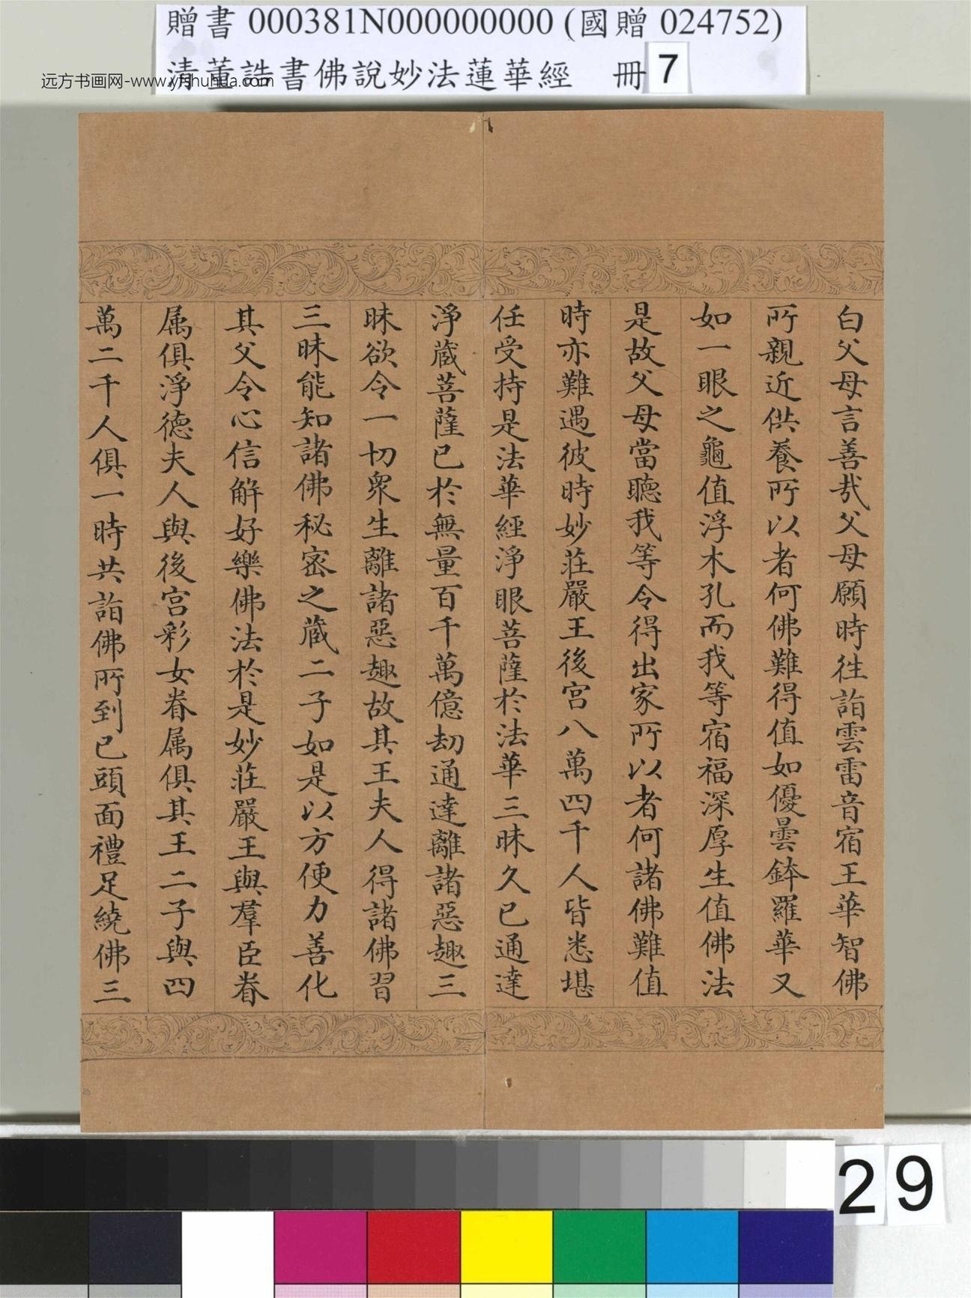 贈書 000381N000000000 (國贈 024752)
清董誥書佛說妙法蓮華經 冊 7
远方书画网-www.yfshuhua.com
白父母言善哉父母願時往詣雲雷音宿王華智佛
所親近供養所以者何佛難得值如優曇鉢羅華又
如一眼之龜值浮木孔而我等宿福深厚生值佛法
是故父母當聽我等令得出家所以者何諸佛難值
時亦難遇彼時妙莊嚴王後宮八萬四千人皆悉堪
任受持是法華經淨眼菩薩於法華三昧久已通達
淨藏菩薩已於無量百千萬億劫通達離諸惡趣三
昧欲令一切衆生離諸惡趣故其王夫人得諸佛習
三昧能知諸佛秘密之藏二子如是以方便力善化
其父令心信解好樂佛法於是妙莊嚴王與羣臣眷
属俱淨德夫人與後宮彩女眷属俱其王二子與四
萬二千人俱一時共詣佛所到已頭面禮足繞佛三
29